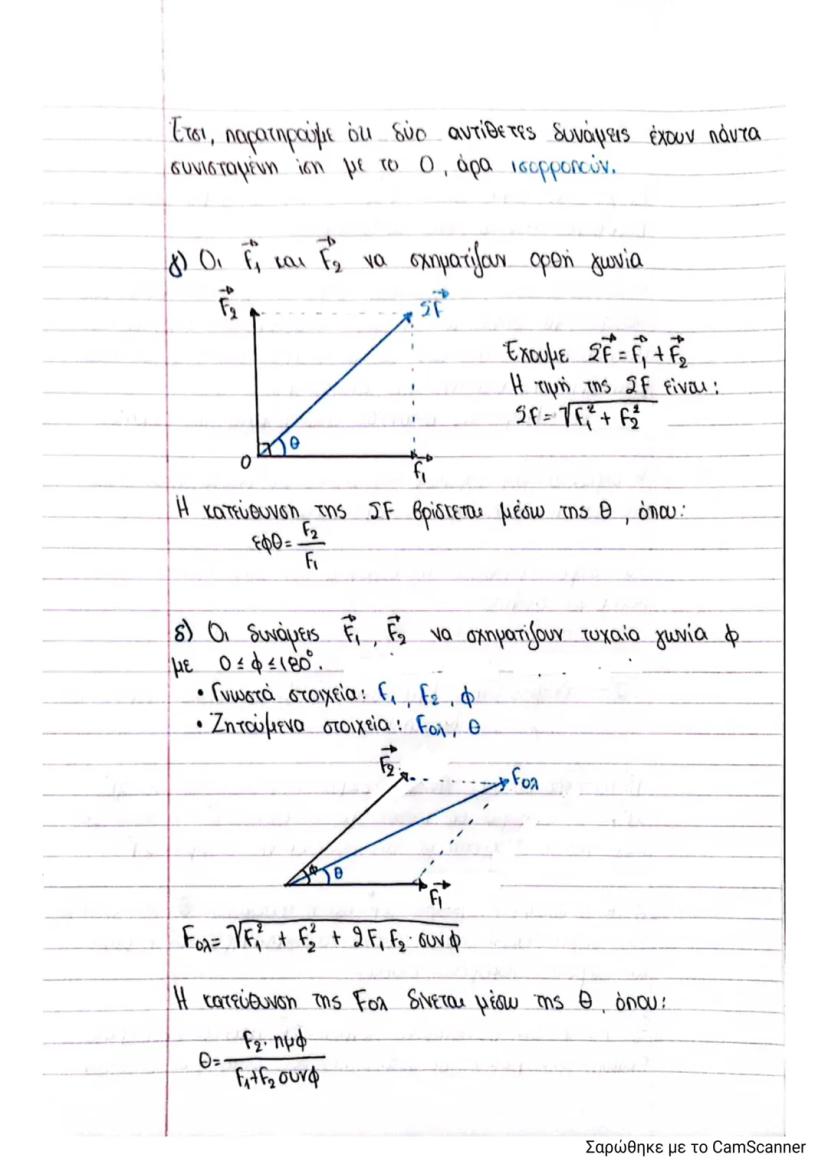 Έτσι, παρατηρούμε ότι δύο αντίθετες δυνάμεις έχουν πάντα
συνισταμένη ίση με το 0, άρα ισορροπούν.
γ) Οι F⃗₁ και F⃗₂ να σχηματίζουν ορθή γωνία
F⃗₂
ΣF⃗
Έχουμε ΣF⃗ = F⃗₁ + F⃗₂
Η τιμή της ΣF είναι:
ΣF = √(F₁² + F₂²)
θ
Ο
F⃗₁
Η κατεύθυνση της ΣF βρίσκεται μέσω της θ, όπου:
εφθ = F₂/F₁
δ) Οι δυνάμεις F⃗₁, F⃗₂ να σχηματίζουν τυχαία γωνία φ
με 0 ≤ φ ≤ 180°.
• Γνωστά στοιχεία: F₁, F₂, φ
• Ζητούμενα στοιχεία: Fολ, θ
F⃗₂
Fολ
φ θ
F⃗₁
Fολ = √(F₁² + F₂² + 2F₁F₂·συνφ)
Η κατεύθυνση της Fολ δίνεται μέσω της θ, όπου:
θ = F₂·ημφ/F₁+F₂συνφ
Σαρώθηκε με το CamScanner